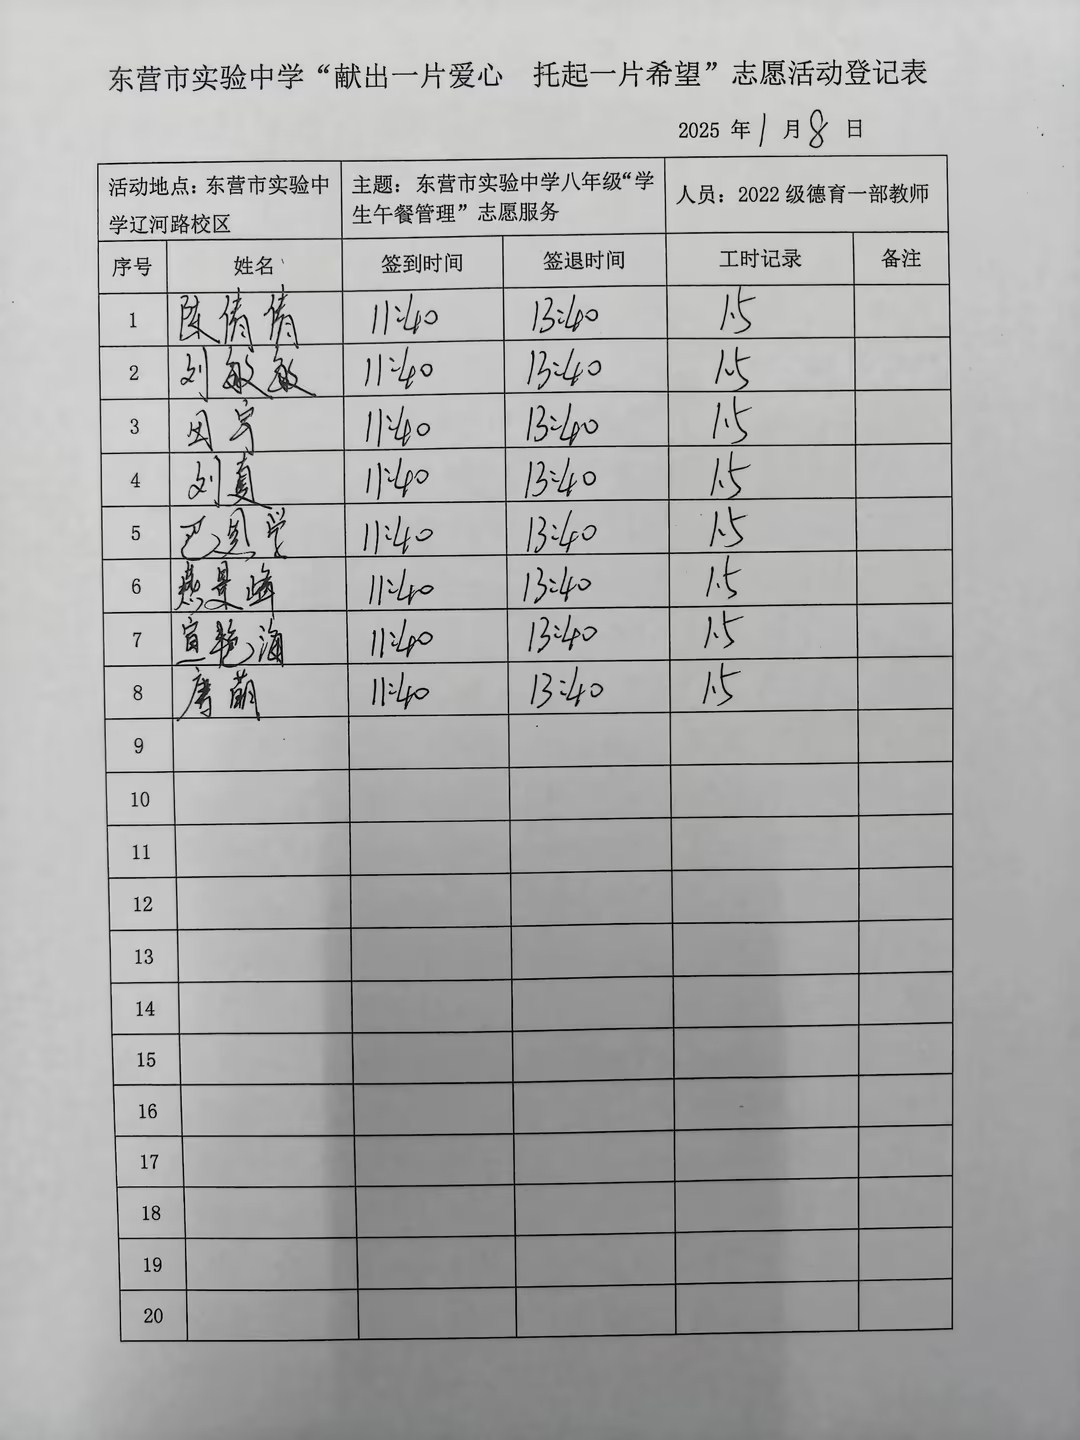 东营市实验中学“献出一片爱心 托起一片希望”志愿活动登记表
2025 年 1 月 8 日
活动地点：东营市实验中学辽河路校区 主题：东营市实验中学八年级“学生午餐管理”志愿服务 人员：2022 级德育一部教师
序号 姓名 签到时间 签退时间 工时记录 备注
1 陈倩倩 11:40 13:40 1.5
2 刘敏敏 11:40 13:40 1.5
3 田宇 11:40 13:40 1.5
4 刘真 11:40 13:40 1.5
5 巴恩学 11:40 13:40 1.5
6 燕景峰 11:40 13:40 1.5
7 宣艳海 11:40 13:40 1.5
8 唐萌 11:40 13:40 1.5
9
10
11
12
13
14
15
16
17
18
19
20